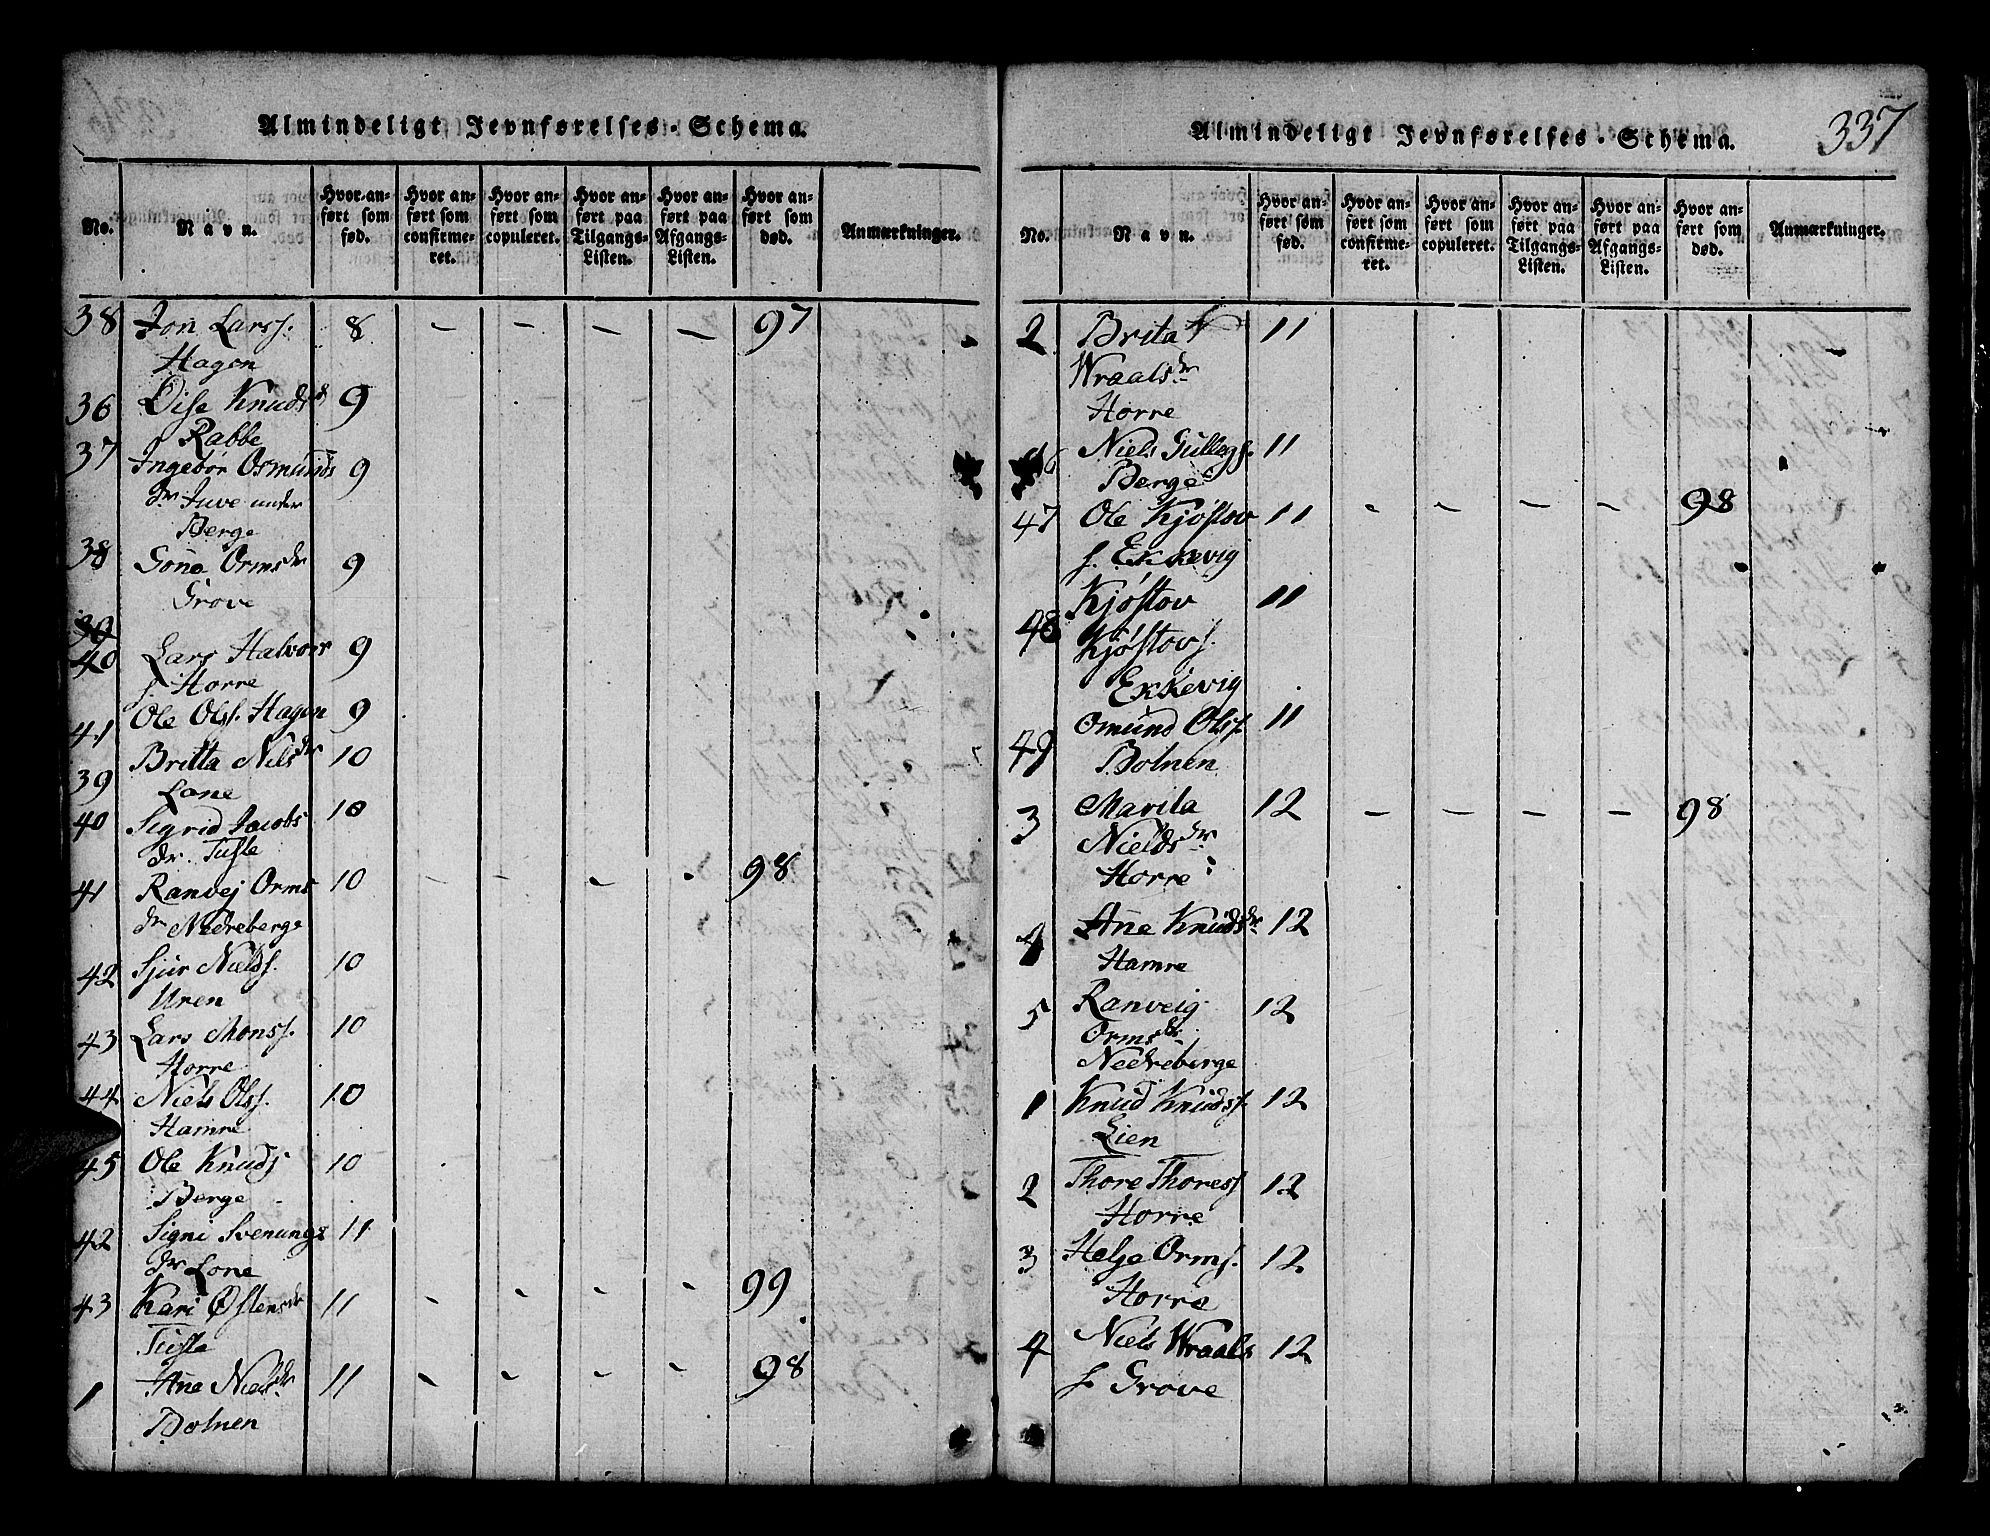 Almindeligt Jevnførelses-Schema.
No.
Navn.
Hvor an-
ført som
fød.
Hvor an-
ført som
confirme-
ret.
Hvor an-
ført som
copuleret.
Hvor an-
ført paa
Tilgangs-
Listen.
Hvor an-
ført paa
Afgangs-
Listen.
Hvor an-
ført som
død.
Anmærkninger.
38 Jon Larss. 8 - - - - 97
Hagen
36 Dise Knudsd 9
Rabbe
37 Ingebor Osmunds 9
dr Juve under
Berge
38 Gono Ormsdr 9
Grove
39
40 Lars Halvors 9
s. Horre
41 Ole Olss. Hagen 9
39 Britta Nilsdr 10
Lone
40 Sigrid Jacobs 10
dr. Tufte
41 Ranvej Orms 10 - - - - 98
dr Nedreberge
42 Sjur Nields. 10
Uren
43 Lars Monss. 10
Horre
44 Niels Olss. 10
Hamre
45 Ole Knuds 10
Berge
42 Signi Svenungs 11
dr Lone
43 Kari Østensdr 11 - - - - 99
Tufte
1 Ane Nielsdr 11 - - - - 98
Bolnen
Almindeligt Jevnførelses-Schema.
337
No.
Navn.
Hvor an-
ført som
fød.
Hvor an-
ført som
confirme-
ret.
Hvor an-
ført som
copuleret.
Hvor an-
ført paa
Tilgangs-
Listen.
Hvor an-
ført paa
Afgangs-
Listen.
Hvor an-
ført som
død.
Anmærkninger.
2 Brita 11
Wraalsdr
Horre
Niels Gullegs. 11
Berge
47 Ole Kjøstov 11 - - - - 98
s. Ekkevig
48 Kjøstov 11
Kjøstovs.
Ekkevig
49 Osmund Olss. 11
Bolnen
3 Marita 12 - - - - 98
Nieldsdr
Horre
4 Ane Knudsdr 12
Hamre
5 Ranveig 12
Ormsdr
Nedreberge
1 Knud Knudss. 12
Lien
2 Thore Thoress 12
Horre
3 Helje Orms. 12
Horre
4 Niels Wraals 12
s Grove